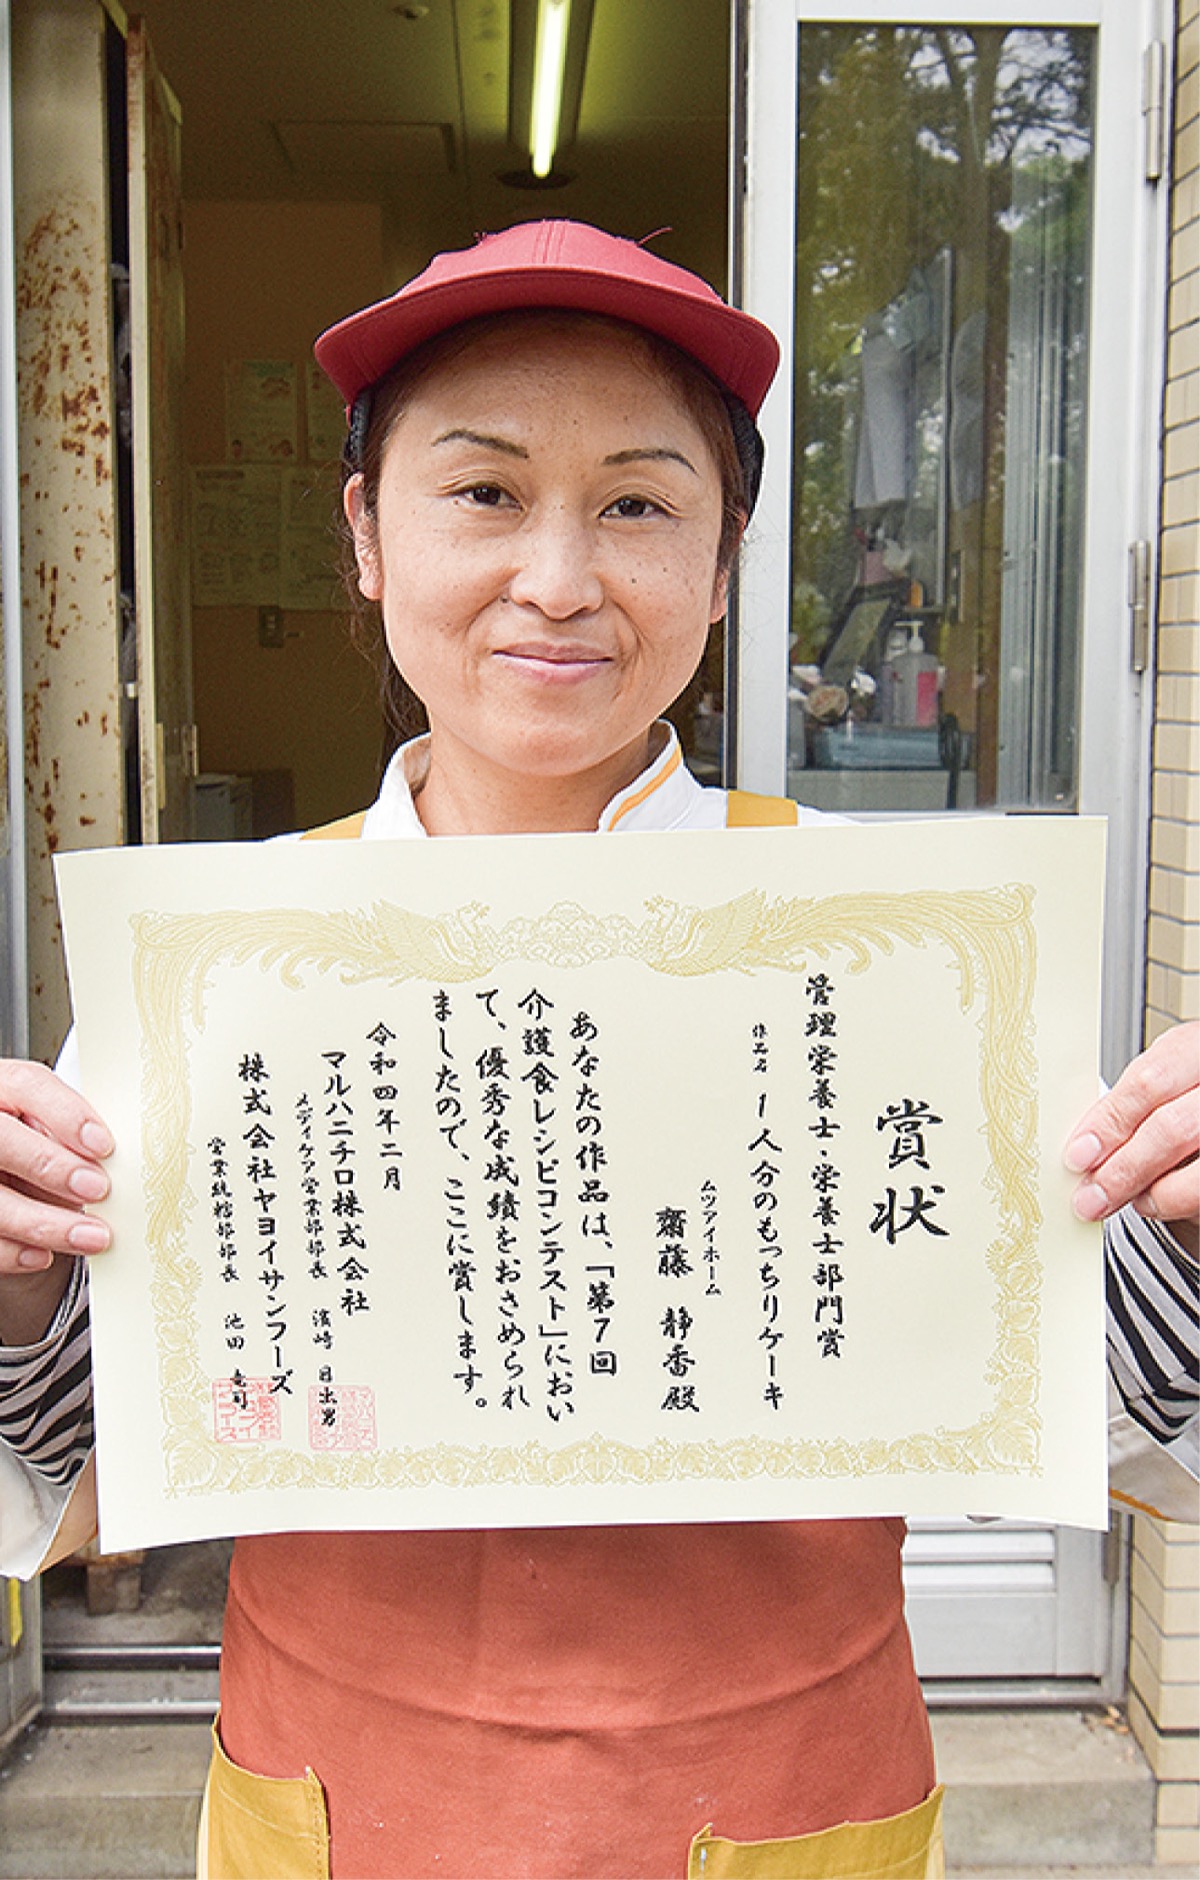 賞状
管理栄養士・栄養士部門賞
作品名 1人分のもっちりケーキ
ムツアイホーム
齋藤 静香殿
あなたの作品は、「第7回
介護食レシピコンテスト」におい
て、優秀な成績をおさめられ
ましたので、ここに賞します。
令和四年二月
マルハニチロ株式会社
メディケア営業部部長 濱崎 日出男
株式会社ヤヨイサンフーズ
営業統轄部部長 池田 竜司